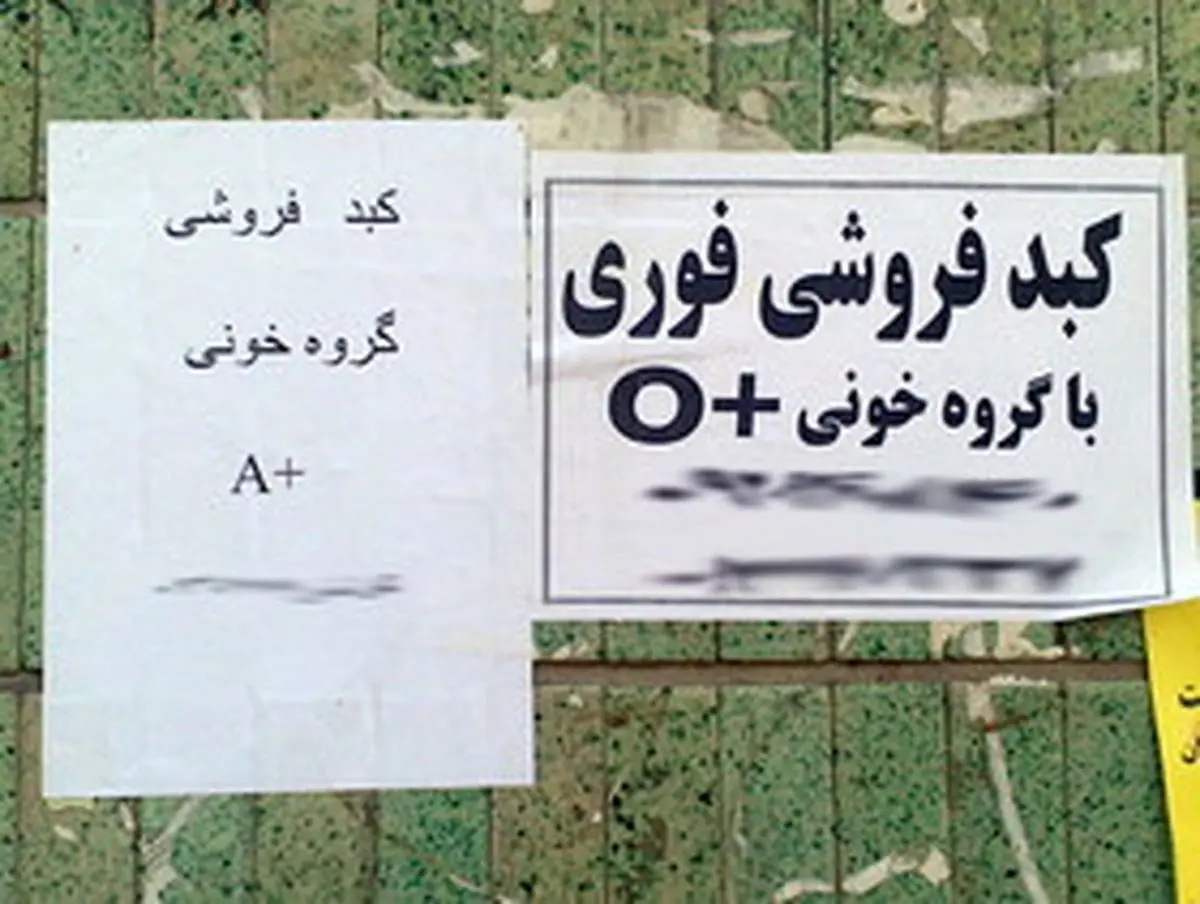 کبد فروشی
گروه خونی
A+
کبد فروشی فوری
با گروه خونی O+